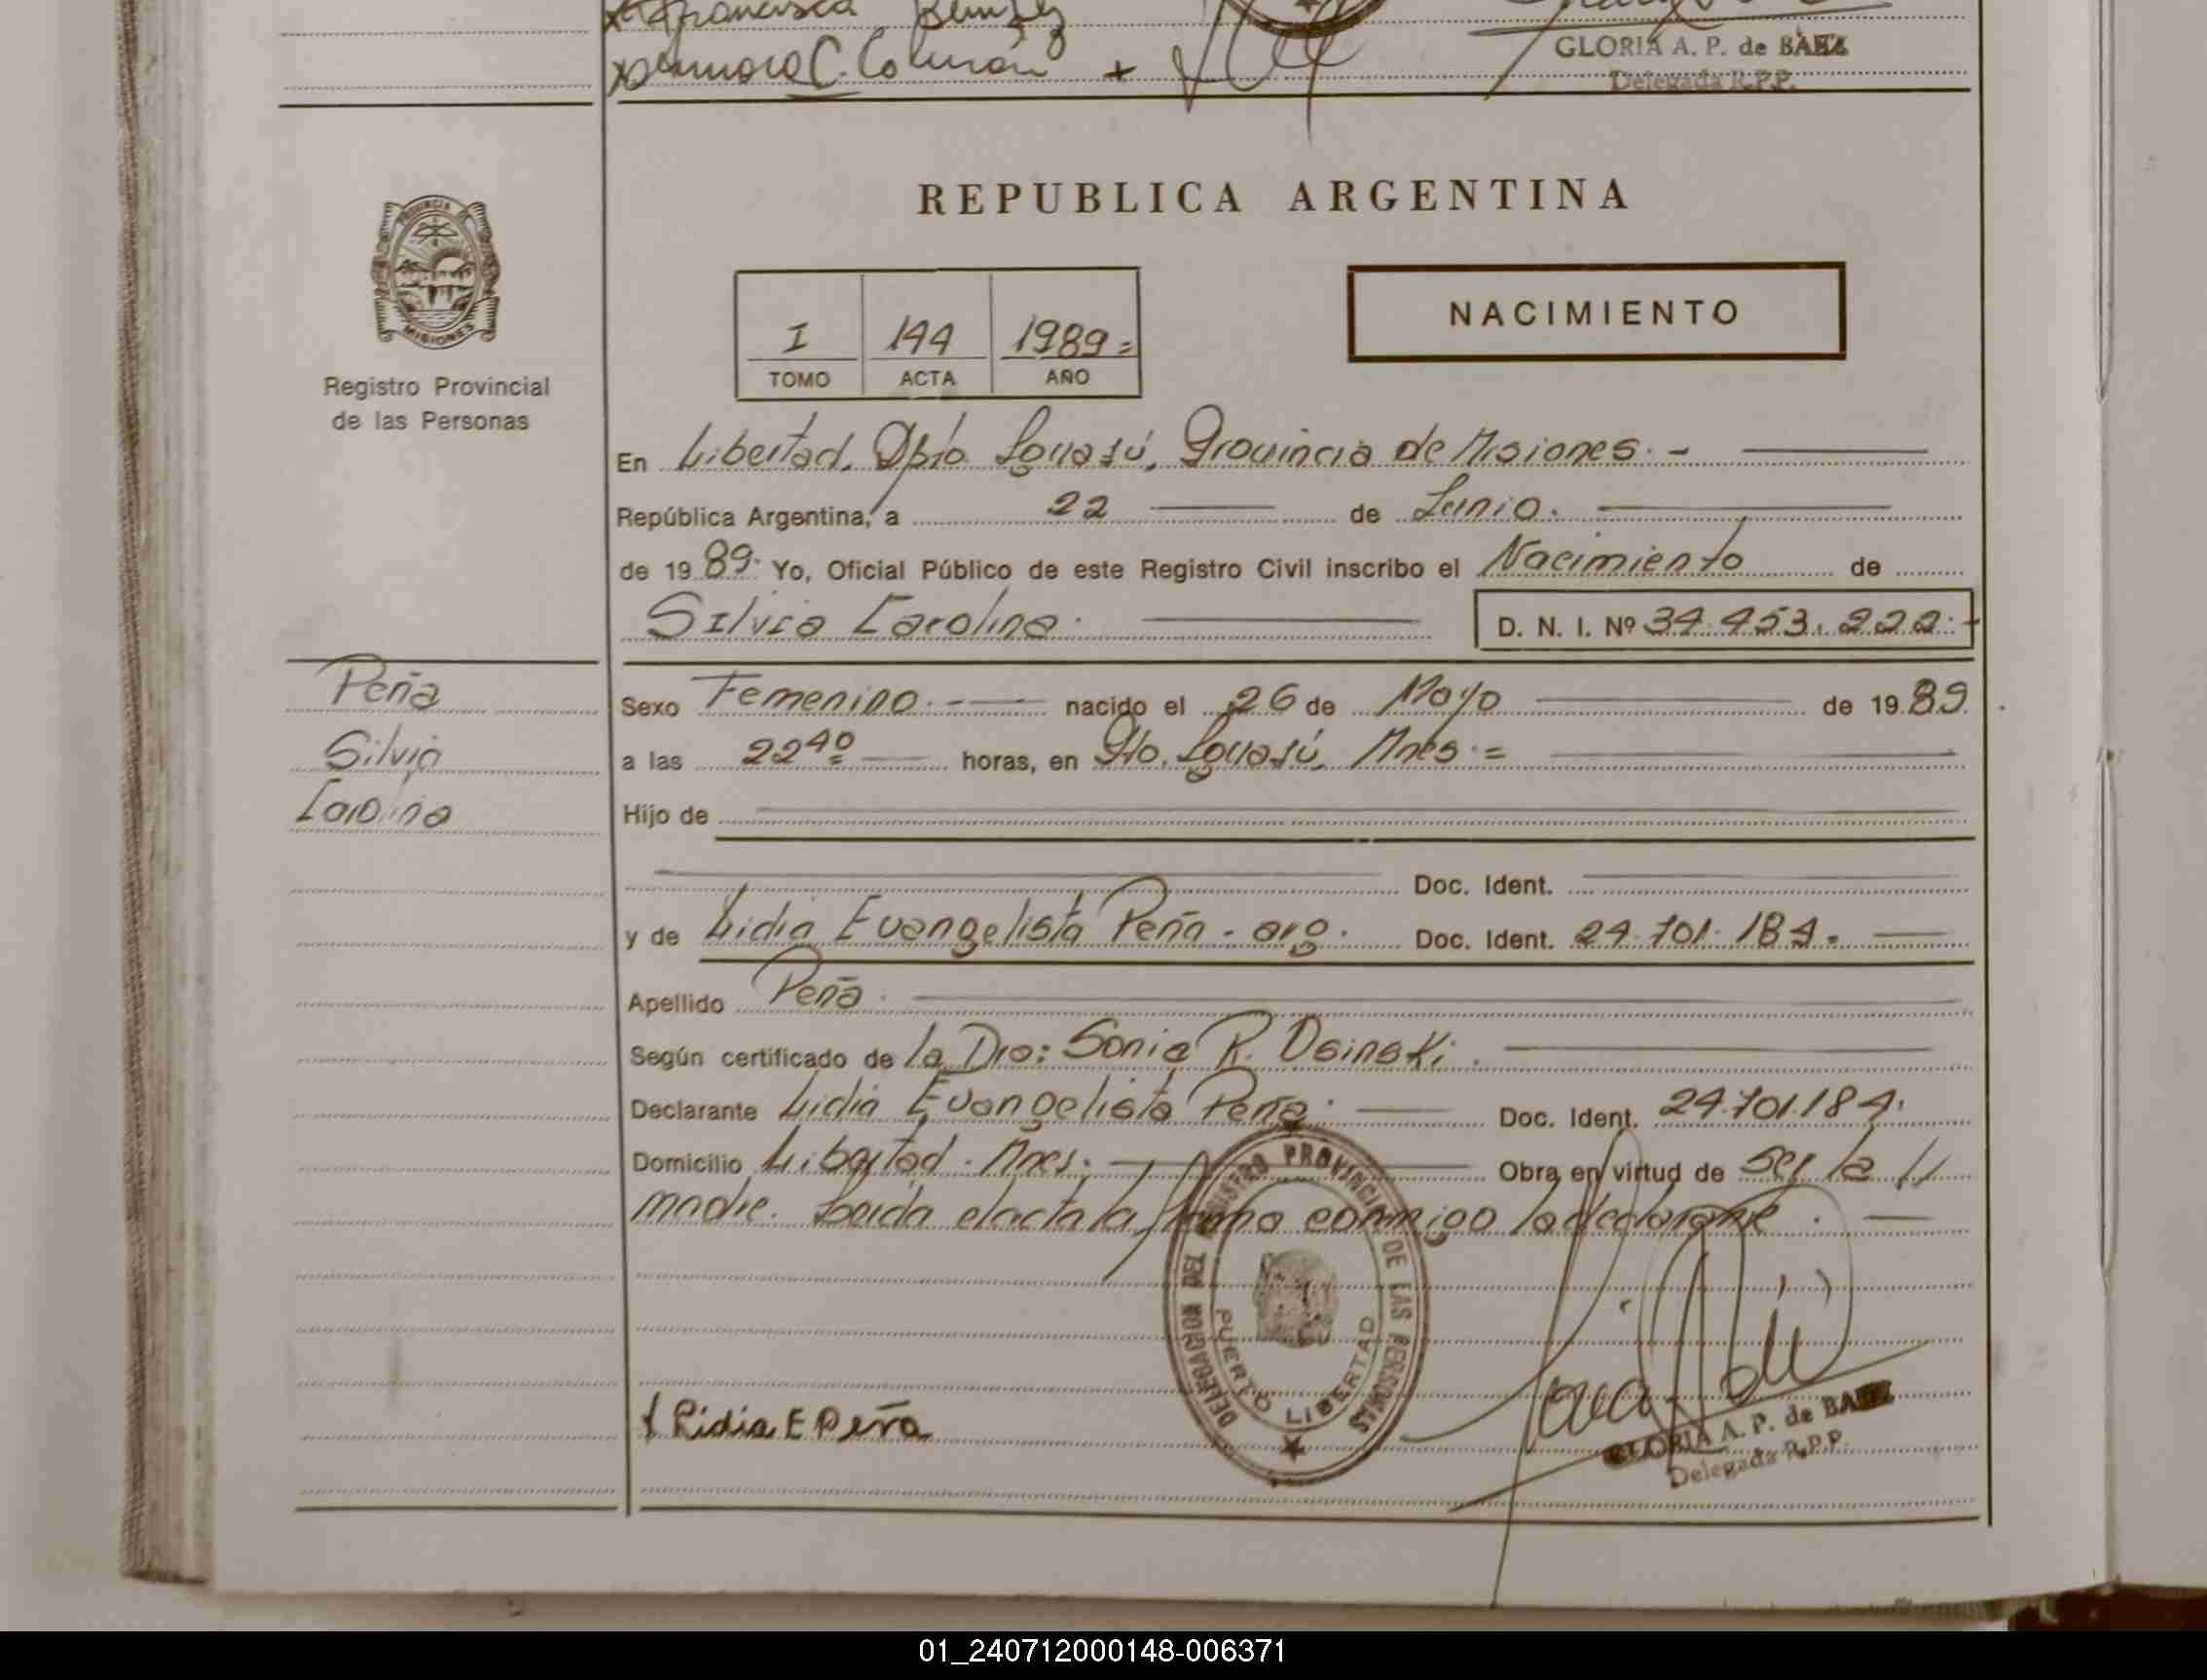 Francisca Benitez
C. Colmán +
GLORIA A. P. de BAEZ
Delegada R.P.P.
PROVINCIA DE
MISIONES
Registro Provincial
de las Personas
REPUBLICA ARGENTINA
NACIMIENTO
I 144 1989=
TOMO ACTA AÑO
En Libertad, Dpto. Iguazú, Provincia de Misiones.-
República Argentina, a 22 de Junio.
de 19 89. Yo, Oficial Público de este Registro Civil inscribo el Nacimiento de
Silvia Carolina. D. N. I. Nº 34.453.222.-
Peña
Silvia
Carolina
Sexo Femenino.- nacido el 26 de Mayo de 19 89.
a las 22 40 horas, en Pto. Iguazú, Mnes.=
Hijo de
Doc. Ident.
y de Lidia Evangelista Peña - arg. Doc. Ident. 24.701.184.-
Apellido Peña.
Según certificado de la Dra: Sonia R. Osinski.
Declarante Lidia Evangelista Peña. Doc. Ident. 24.701.184.
Domicilio Libertad. Mnes. Obra en virtud de ser la
madre. Leída el acta la firma conmigo la declarante.
DELEGACION DEL REGISTRO PROVINCIAL DE LAS PERSONAS
PUERTO LIBERTAD
Lidia E Peña
GLORIA A. P. de BAEZ
Delegada R.P.P.
01_240712000148-006371